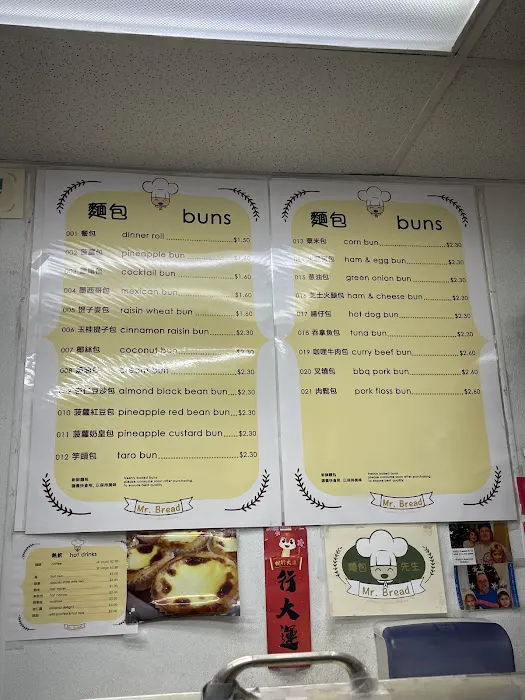 麵包 buns
001 餐包 dinner roll $1.50
002 菠蘿包 pineapple bun
cocktail bun $1.60
004 墨西哥包 mexican bun $1.60
005 提子麥包 raisin wheat bun $1.60
006 玉桂提子包 cinnamon raisin bun $2.30
007 椰絲包 coconut bun
008 cream bun
almond black bean bun $2.30
010 菠蘿紅豆包 pineapple red bean bun $2.30
011 菠蘿奶皇包 pineapple custard bun $2.30
012 芋頭包 taro bun $2.30
freshly baked buns
please consume soon after purchasing
to ensure best quality
Mr. Bread
麵包 buns
013 粟米包 corn bun $2.30
ham & egg bun $2.30
015 葱油包 green onion bun $2.30
芝士火腿包 ham & cheese bun $2.30
017 腸仔包 hot dog bun $2.30
018 吞拿魚包 tuna bun $2.30
019 咖喱牛肉包 curry beef bun $2.60
020 叉燒包 bbq pork bun $2.60
021 肉鬆包 pork floss bun $2.60
freshly baked buns
please consume soon after purchasing
to ensure best quality
Mr. Bread
熱飲 hot drinks
coffee
行大運
麵包先生
Mr. Bread